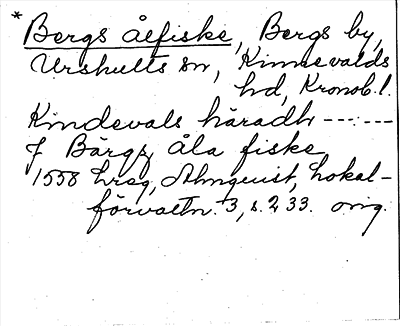 * Bergs ålfiske, Bergs by,
Urshults sn, Kinnevalds
hd, Kronob. l.
Kindevals häradh --- : ---
J Bärgz åla fiske
1558 hrsg, Almquist, Lokal-
förvaltn. 3, s. 233. orig.